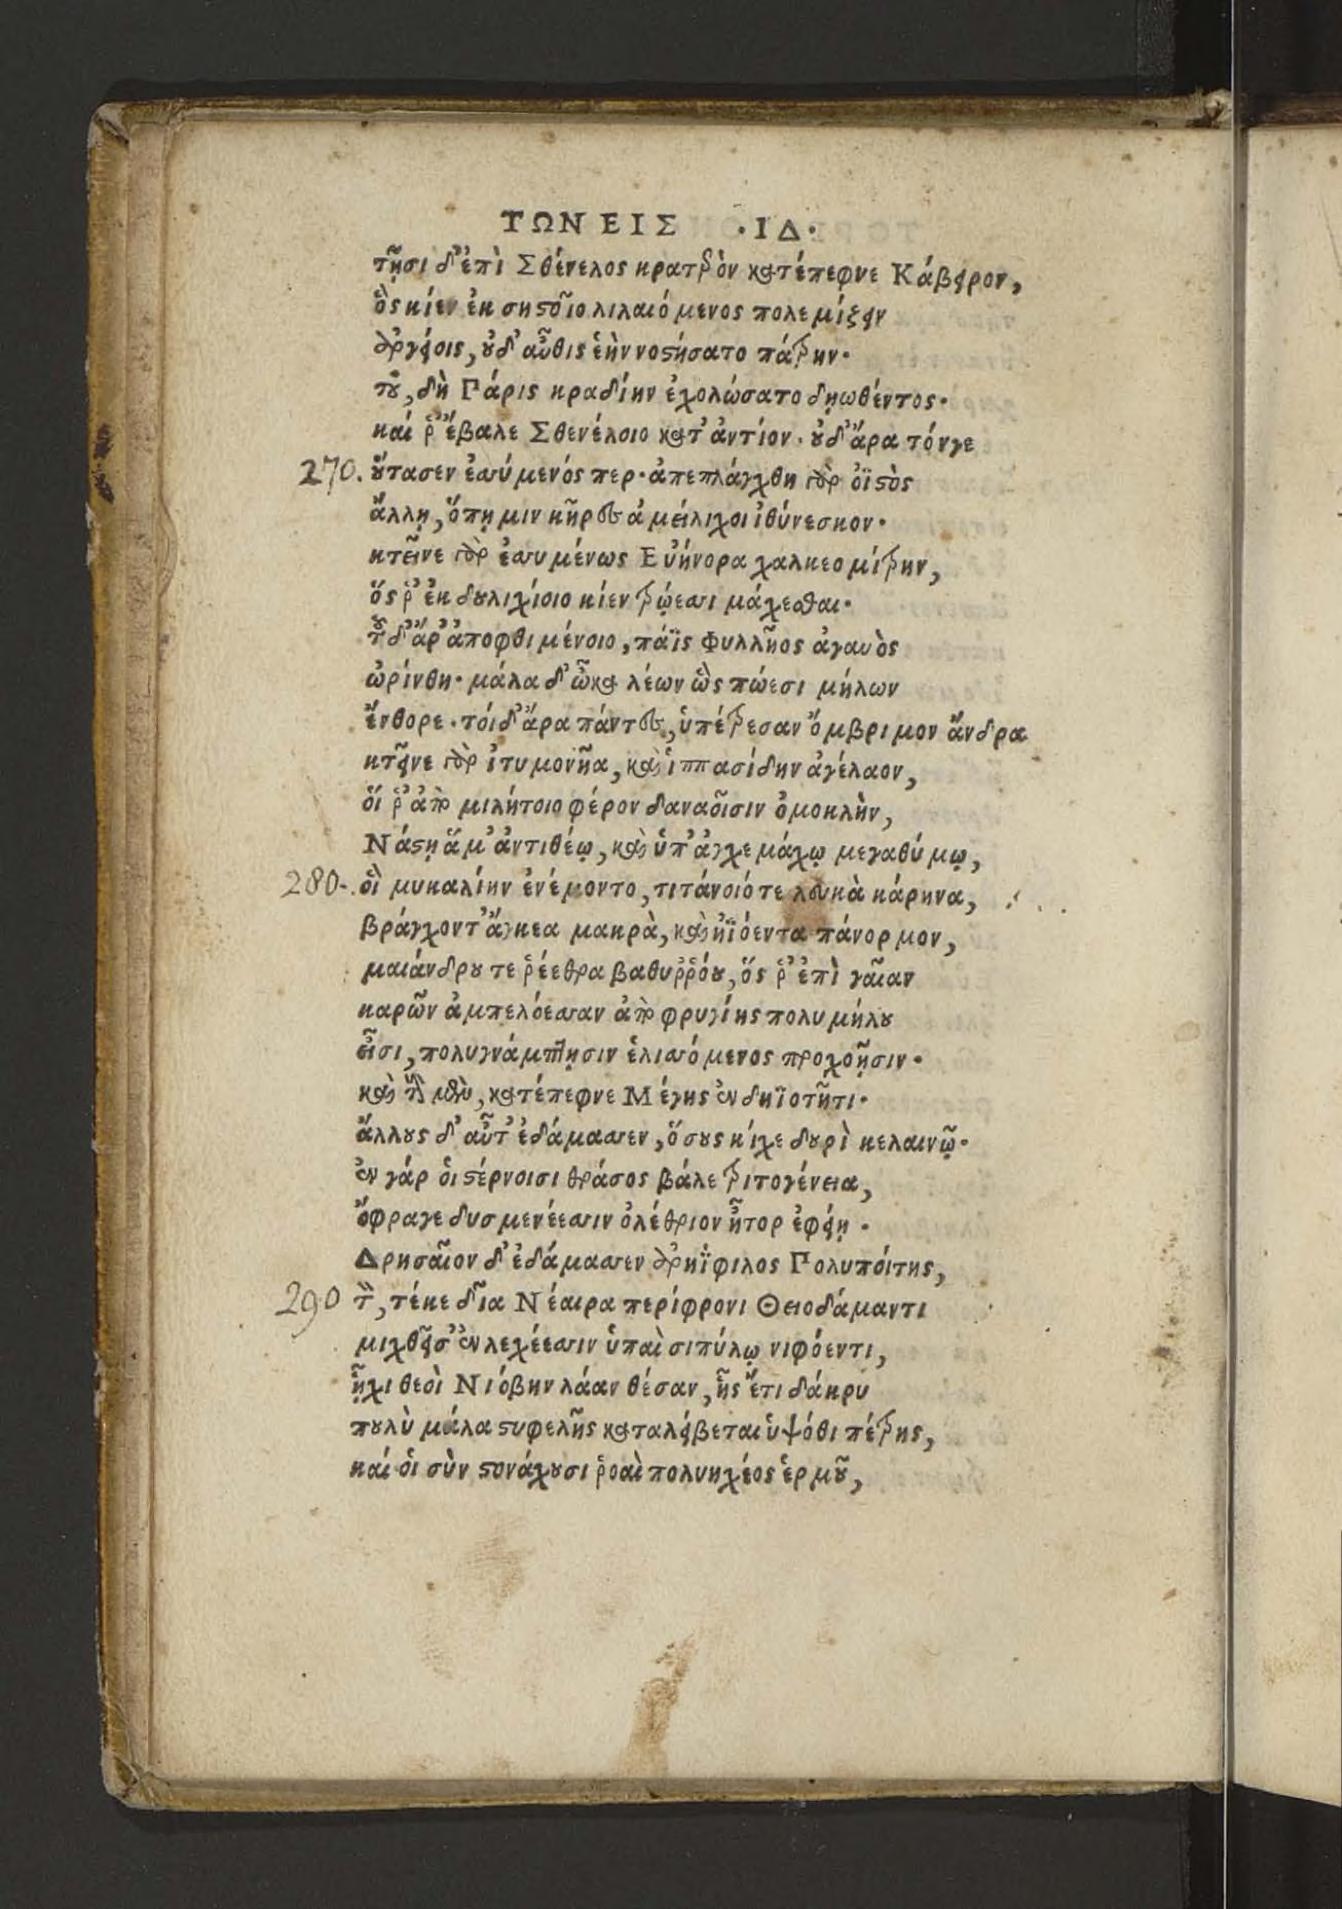 ΤΩΝ ΕΙΣ ·ΙΔ·
τῇσι δ᾽ ἐπὶ Σθένελος κρατερὸν κατέπεφνε Κάβειρον,
ὃς κίεν ἐκ σηστοῖο λιλαιόμενος πολεμίξειν
ἀργείοις, οὐδ᾽ αὖθις ἑὴν νοστήσατο πάτρην·
τοῦ, δὴ Πάρις κραδίην ἐχολώσατο δῃωθέντος·
καί ῥ᾽ ἔβαλε Σθενέλοιο κατ᾽ ἀντίον· οὐδ᾽ ἄρα τόνγε
270. οὔτασεν ἐσσύμενός περ· ἀπεπλάγχθη γὰρ ὀϊστὸς
ἄλλῃ, ὅπῃ μιν κῆρες ἀμείλιχοι ἰθύνεσκον·
κτεῖνε γὰρ ἐσσυμένως Εὐήνορα χαλκεομίτρην,
ὅς ῥ᾽ ἐκ δουλιχίοιο κίεν τρώεσσι μάχεσθαι·
τοῦ δ᾽ ἄρ᾽ ἀποφθιμένοιο, πάϊς Φυλλῆος ἀγαυὸς
ὠρίνθη· μάλα δ᾽ ὦκα λέων ὣς πώεσι μήλων
ἔνθορε· τοί δ᾽ ἄρα πάντες, ὑπέτρεσαν ὄμβριμον ἄνδρα
κτεῖνε γὰρ ἰτυμονῆα, καὶ ἱππασίδην ἀγέλαον,
οἵ ῥ᾽ ἀπὸ μιλήτοιο φέρον δαναοῖσιν ὁμοκλὴν,
Νάστῃ ἅμ᾽ ἀντιθέῳ, καὶ ὑπ᾽ ἀγχεμάχῳ μεγαθύμῳ,
280. οἳ μυκαλίην ἐνέμοντο, τιτάνοιό τε λευκὰ κάρηνα,
βράγχοντ᾽ ἄγκεα μακρὰ, καὶ ἠϊόεντα πάνορμον,
μαιάνδρου τε ῥέεθρα βαθυῤῥόου, ὅς ῥ᾽ ἐπὶ γαῖαν
καρῶν ἀμπελόεσσαν ἀπὸ φρυγίης πολυμήλου
εἶσι, πολυγνάμπτησιν ἑλισσόμενος προχοῇσιν·
καὶ τοὺς μὲν, κατέπεφνε Μέγης ἐν δηϊοτῆτι·
ἄλλους δ᾽ αὖτ᾽ ἐδάμασσεν, ὅσους κίχε δουρὶ κελαινῷ·
ἐν γάρ οἱ στέρνοισι θράσος βάλε τριτογένεια,
ὄφραγε δυσμενέεσσιν ὀλέθριον ἦτορ ἐφείη·
Δρησαῖον δ᾽ ἐδάμασσεν ἀρηΐφιλος Πολυποίτης,
290 τὸν, τέκε δῖα Νέαιρα περίφρονι Θειοδάμαντι
μιχθεῖσ᾽ ἐν λεχέεσσιν ὑπαὶ σιπύλῳ νιφόεντι,
ἧχι θεοὶ Νιόβην λάαν θέσαν, ἧς ἔτι δάκρυ
πουλὺ μάλα στυφελῆς καταλείβεται ὑψόθι πέτρης,
καί οἱ σὺν στονάχουσι ῥοαὶ πολυηχέος ἑρμοῦ,